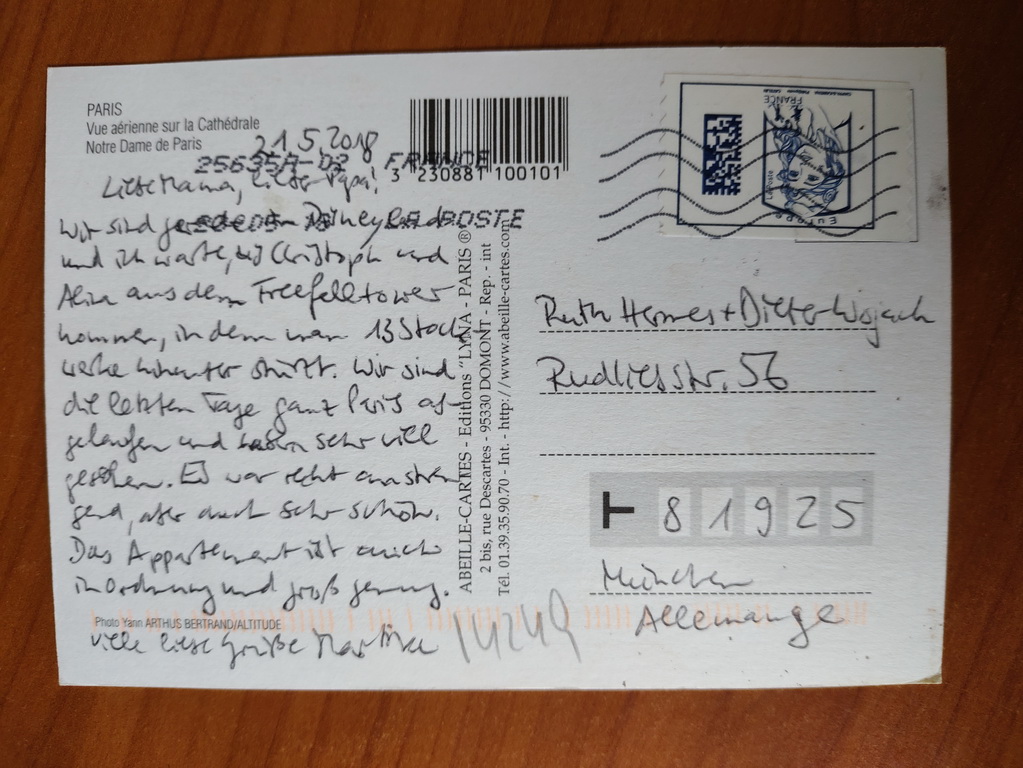 PARIS
Vue aérienne sur la Cathédrale
Notre Dame de Paris
21.5.2018
25635A-02 FRANCE
3 230881 100101
Liebe Mama, lieber Papa!
LA POSTE
Wir sind gerade im Disneyland
und ich warte, bis Christoph und
Alina aus dem Freefalltower
kommen, in dem man 13 Stock-
werke hinunter stürzt. Wir sind
die letzten Tage ganz Paris ab-
gelaufen und haben sehr viel
gesehen. Es war recht anstren
gend, aber auch sehr schön.
Das Appartement ist auch
in Ordnung und groß genug.
Photo Yann ARTHUS BERTRAND/ALTITUDE
Viele liebe Grüße Martina
14249
ABEILLE-CARTES - Editions "LYNA - PARIS ®
2 bis, rue Descartes - 95330 DOMONT - Rep. - int
Tél. 01.39.35.90.70 - Int. - http://www.abeille-cartes.com
FRANCE
EUROPE
Ruth Hermes + Dieter Wojach
Rudliesstr. 56
T 81925
München
Allemange